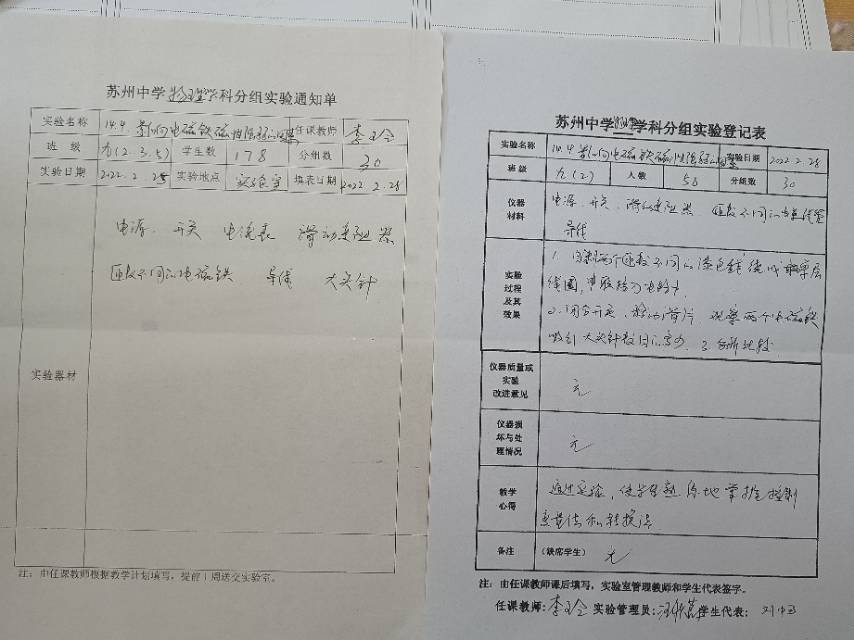 苏州中学物理学科分组实验通知单
实验名称 14.4 影响电磁铁磁性强弱的因素 任课教师 李
班级 九(2.3.5) 学生数 178 分组数 30
实验日期 2022.2.25 实验地点 实验室 填表日期 2022.2.25
电源 开关 电流表 滑动变阻器
匝数不同的电磁铁 导线 大头针
实验器材
注：由任课教师根据教学计划填写，提前1周送交实验室。
苏州中学物理学科分组实验登记表
实验名称 14.4 影响电磁铁磁性强弱的因素 实验日期 2022.2.28
班级 九(2) 人数 58 分组数 30
仪器
材料
电源、开关、滑动变阻器 匝数不同的
导线
实验
过程
及其
效果
1. 两个匝数不同的
线圈，串联
2. 闭合开关，移动滑片 观察两个电磁铁
吸引大头针数目 3. 分析比较
仪器质量或
实验
改进意见
无
仪器损
坏与处
理情况
无
教学
心得
通过实验，使学生熟练地掌握控制
变量法和转换法
备注 (缺席学生) 无
注：由任课教师课后填写，实验室管理教师和学生代表签字。
任课教师: 李 实验管理员: 汪 学生代表: 刘